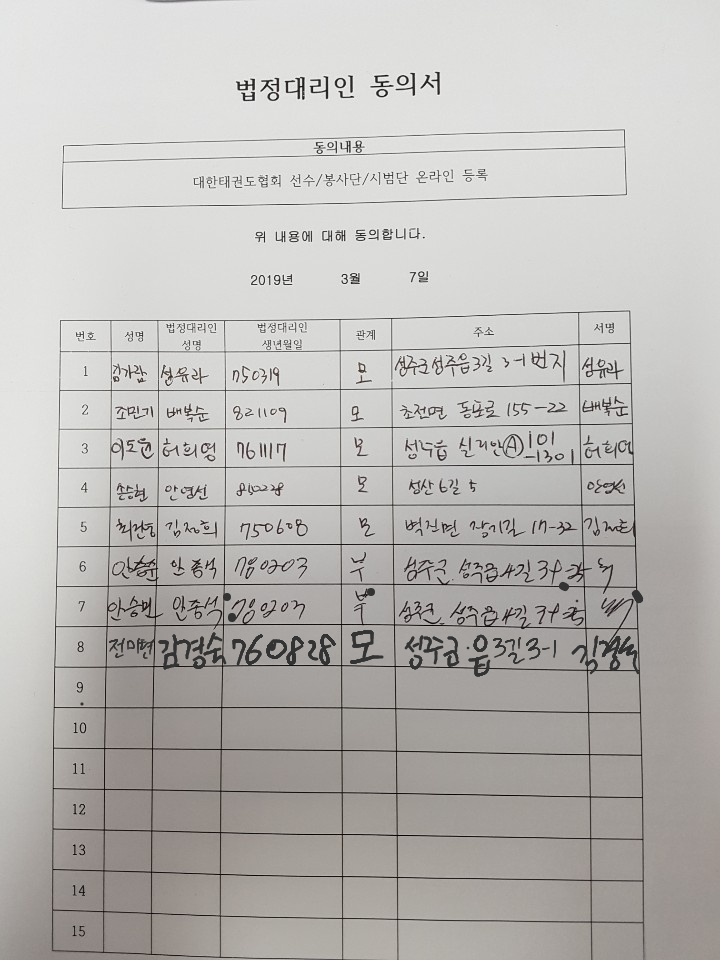 법정대리인 동의서
동의내용
대한태권도협회 선수/봉사단/시범단 온라인 등록
위 내용에 대해 동의합니다.
2019년 3월 7일
번호 성명 법정대리인 성명 법정대리인 생년월일 관계 주소 서명
1 김가람 성유라 750319 모 성주군 성주읍 3길 3-1 번지 성유라
2 조민기 배복순 821109 모 초전면 동포로 155-22 배복순
3 이도윤 허희영 761117 모 성주읍 실리안(A) 101-1301 허희영
4 손승현 안영선 모 성산 6길 5 안영선
5 김정희 750608 모 벽진면 장기길 17-32 김정희
6 안종석 부 성주군. 성주읍 4길 34
7 안종석 부 성주군. 성주읍 4길 34
8 김경숙 760828 모 성주군·읍 3길 3-1 김경숙
9
10
11
12
13
14
15